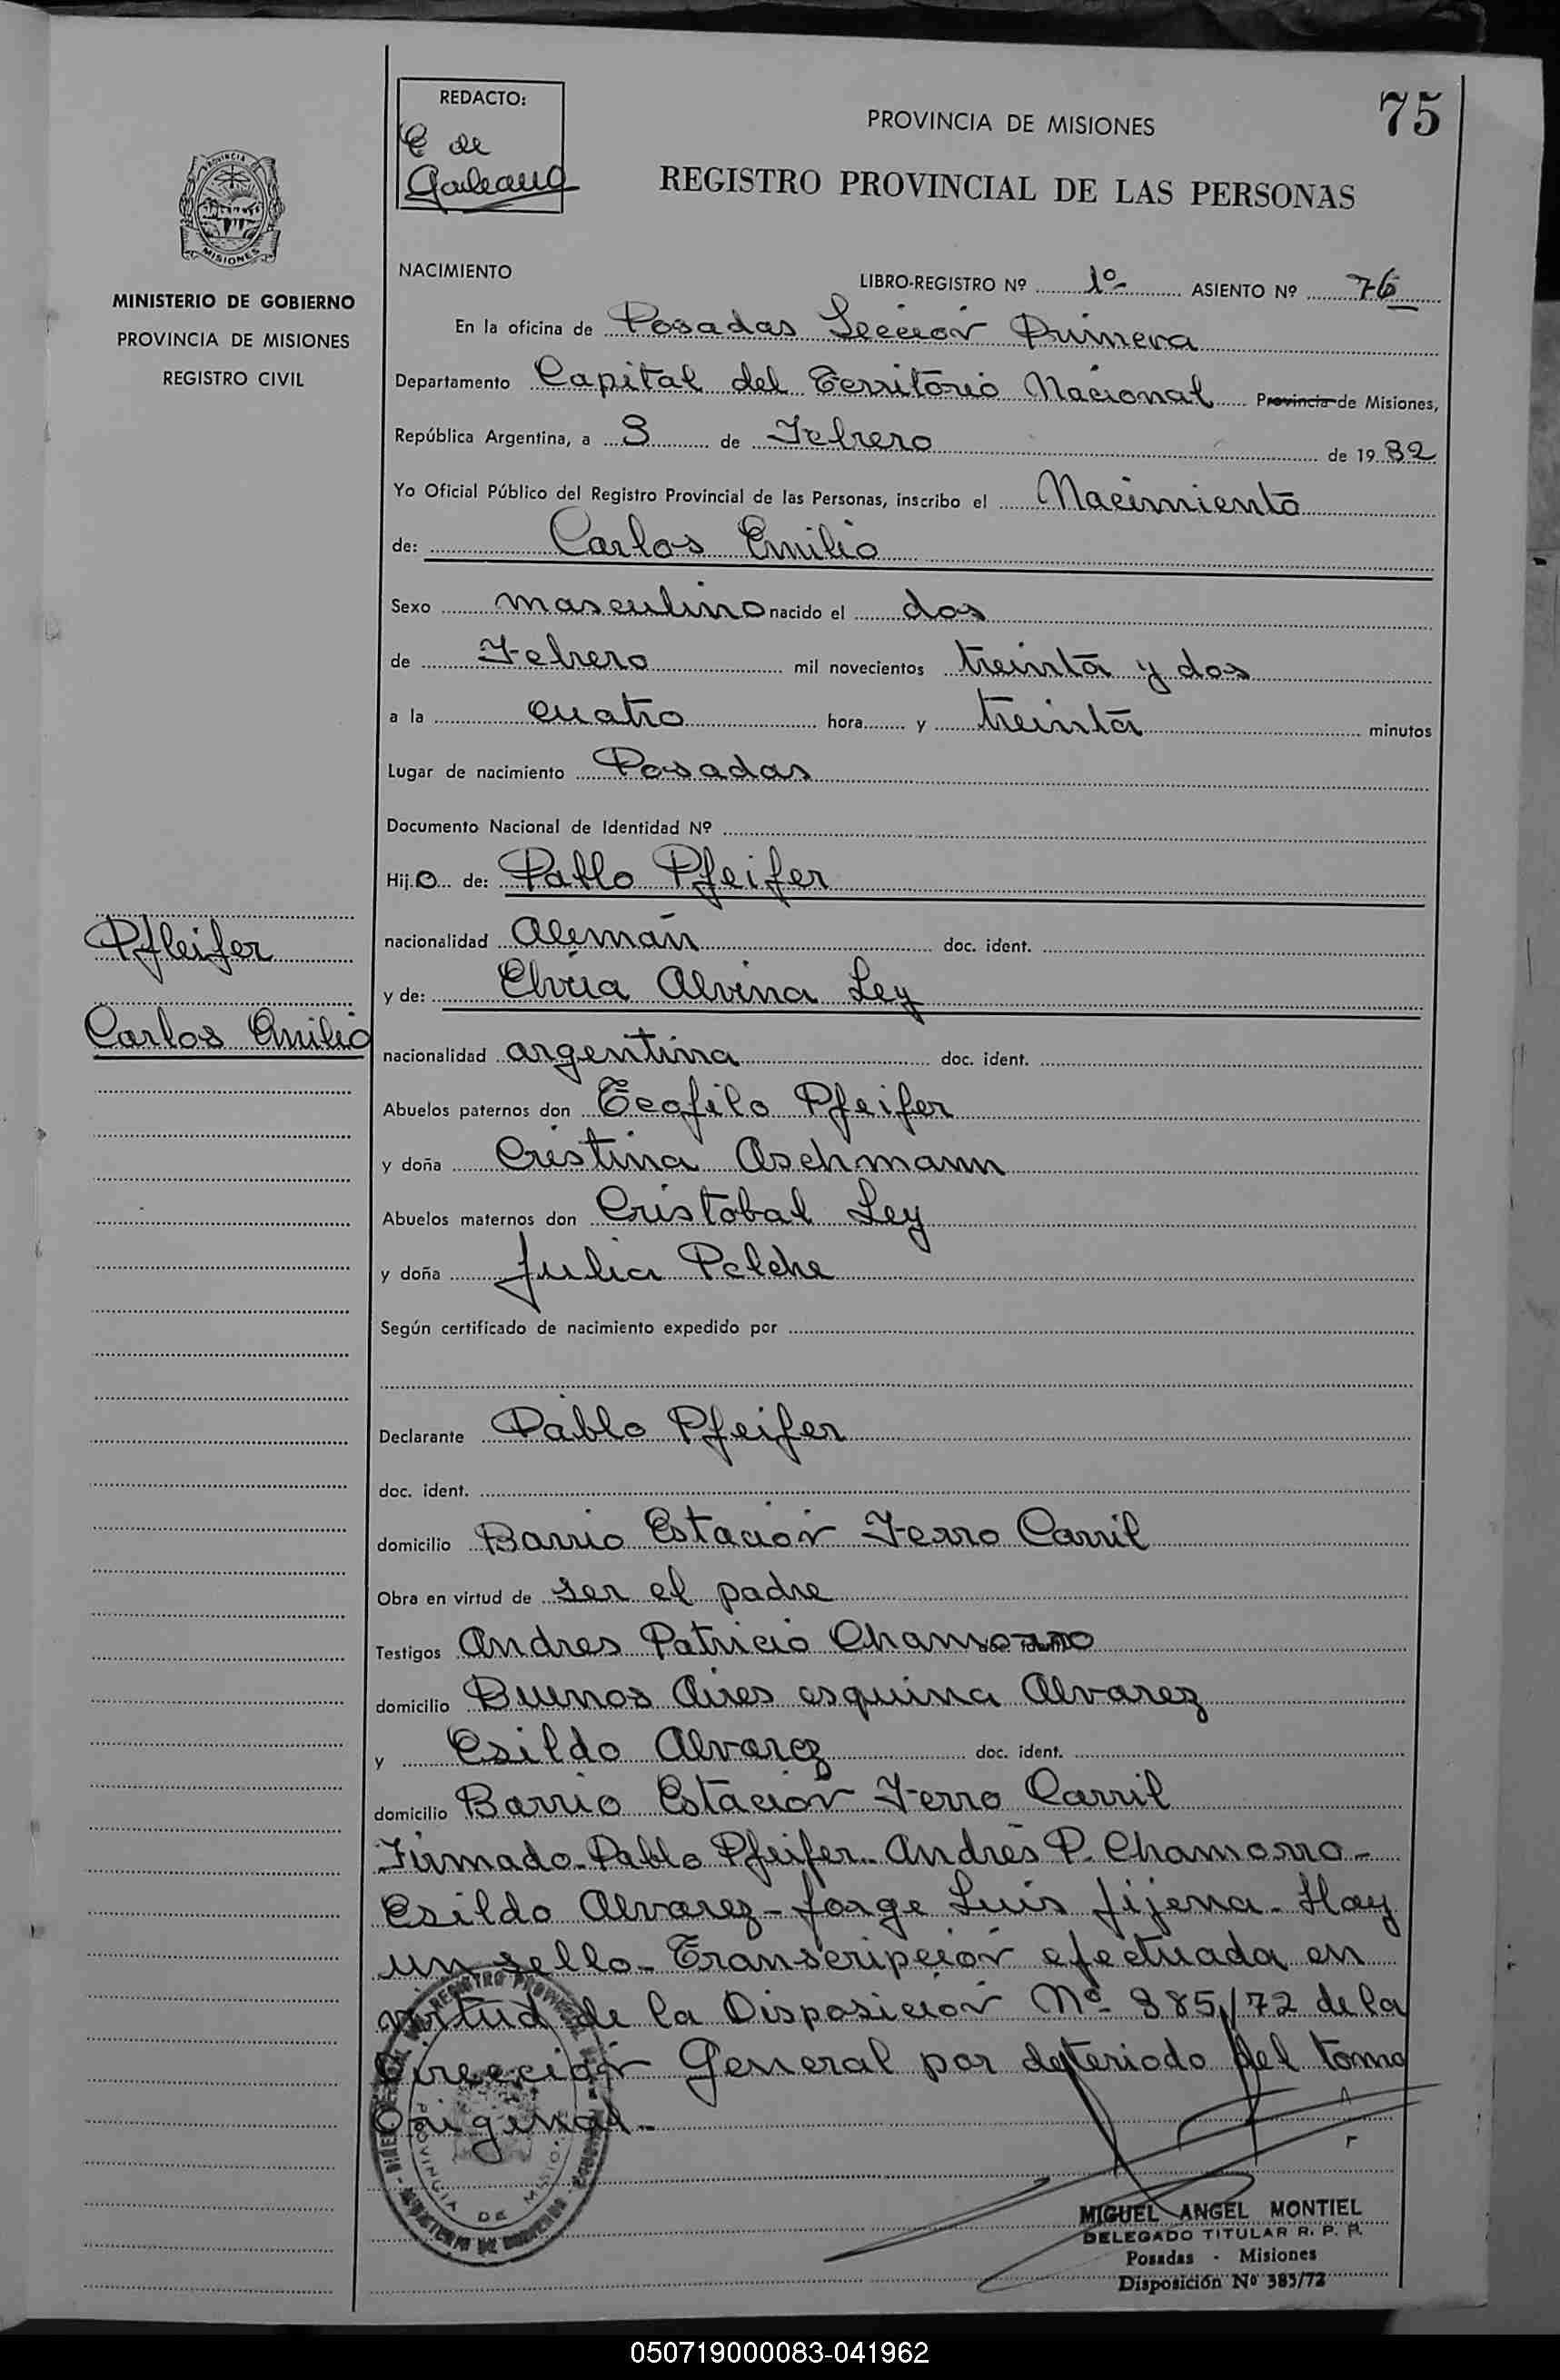 75
REDACTO:
E de
Galeano
PROVINCIA DE MISIONES
REGISTRO PROVINCIAL DE LAS PERSONAS
MISIONES
MINISTERIO DE GOBIERNO
PROVINCIA DE MISIONES
REGISTRO CIVIL
NACIMIENTO LIBRO-REGISTRO Nº 1º ASIENTO Nº 76
En la oficina de Posadas Sección Primera
Departamento Capital del Territorio Nacional Provincia de Misiones,
República Argentina, a 3 de Febrero de 1932
Yo Oficial Público del Registro Provincial de las Personas, inscribo el Nacimiento
de: Carlos Emilio
Sexo masculino nacido el dos
de Febrero mil novecientos treinta y dos
a la cuatro hora y treinta minutos
Lugar de nacimiento Posadas
Documento Nacional de Identidad Nº
Hijo de: Pablo Pfeifer
Pfleifer
nacionalidad Alemán doc. ident.
y de: Elvira Alvina Ley
Carlos Emilio
nacionalidad argentina doc. ident.
Abuelos paternos don Teofilo Pfeifer
y doña Cristina Aschmann
Abuelos maternos don Cristobal Ley
y doña Julia Pelche
Según certificado de nacimiento expedido por
Declarante Pablo Pfeifer
doc. ident.
domicilio Barrio Estación Ferro Carril
Obra en virtud de ser el padre
Testigos Andres Patricio Chamorro doc. ident.
domicilio Buenos Aires esquina Alvarez
y Esildo Alvarez doc. ident.
domicilio Barrio Estación Ferro Carril
Firmado-Pablo Pfeifer-Andrés P. Chamorro-
Esildo Alvarez-Jorge Luis Jijena-Hay
un sello-Transcripción efectuada en
virtud de la Disposición Nº 385/72 de la
Dirección General por deteriodo del tomo
Original-
PROVINCIA DE MISIONES
MIGUEL ANGEL MONTIEL
DELEGADO TITULAR R. P. P.
Posadas - Misiones
Disposición Nº 385/72
050719000083-041962